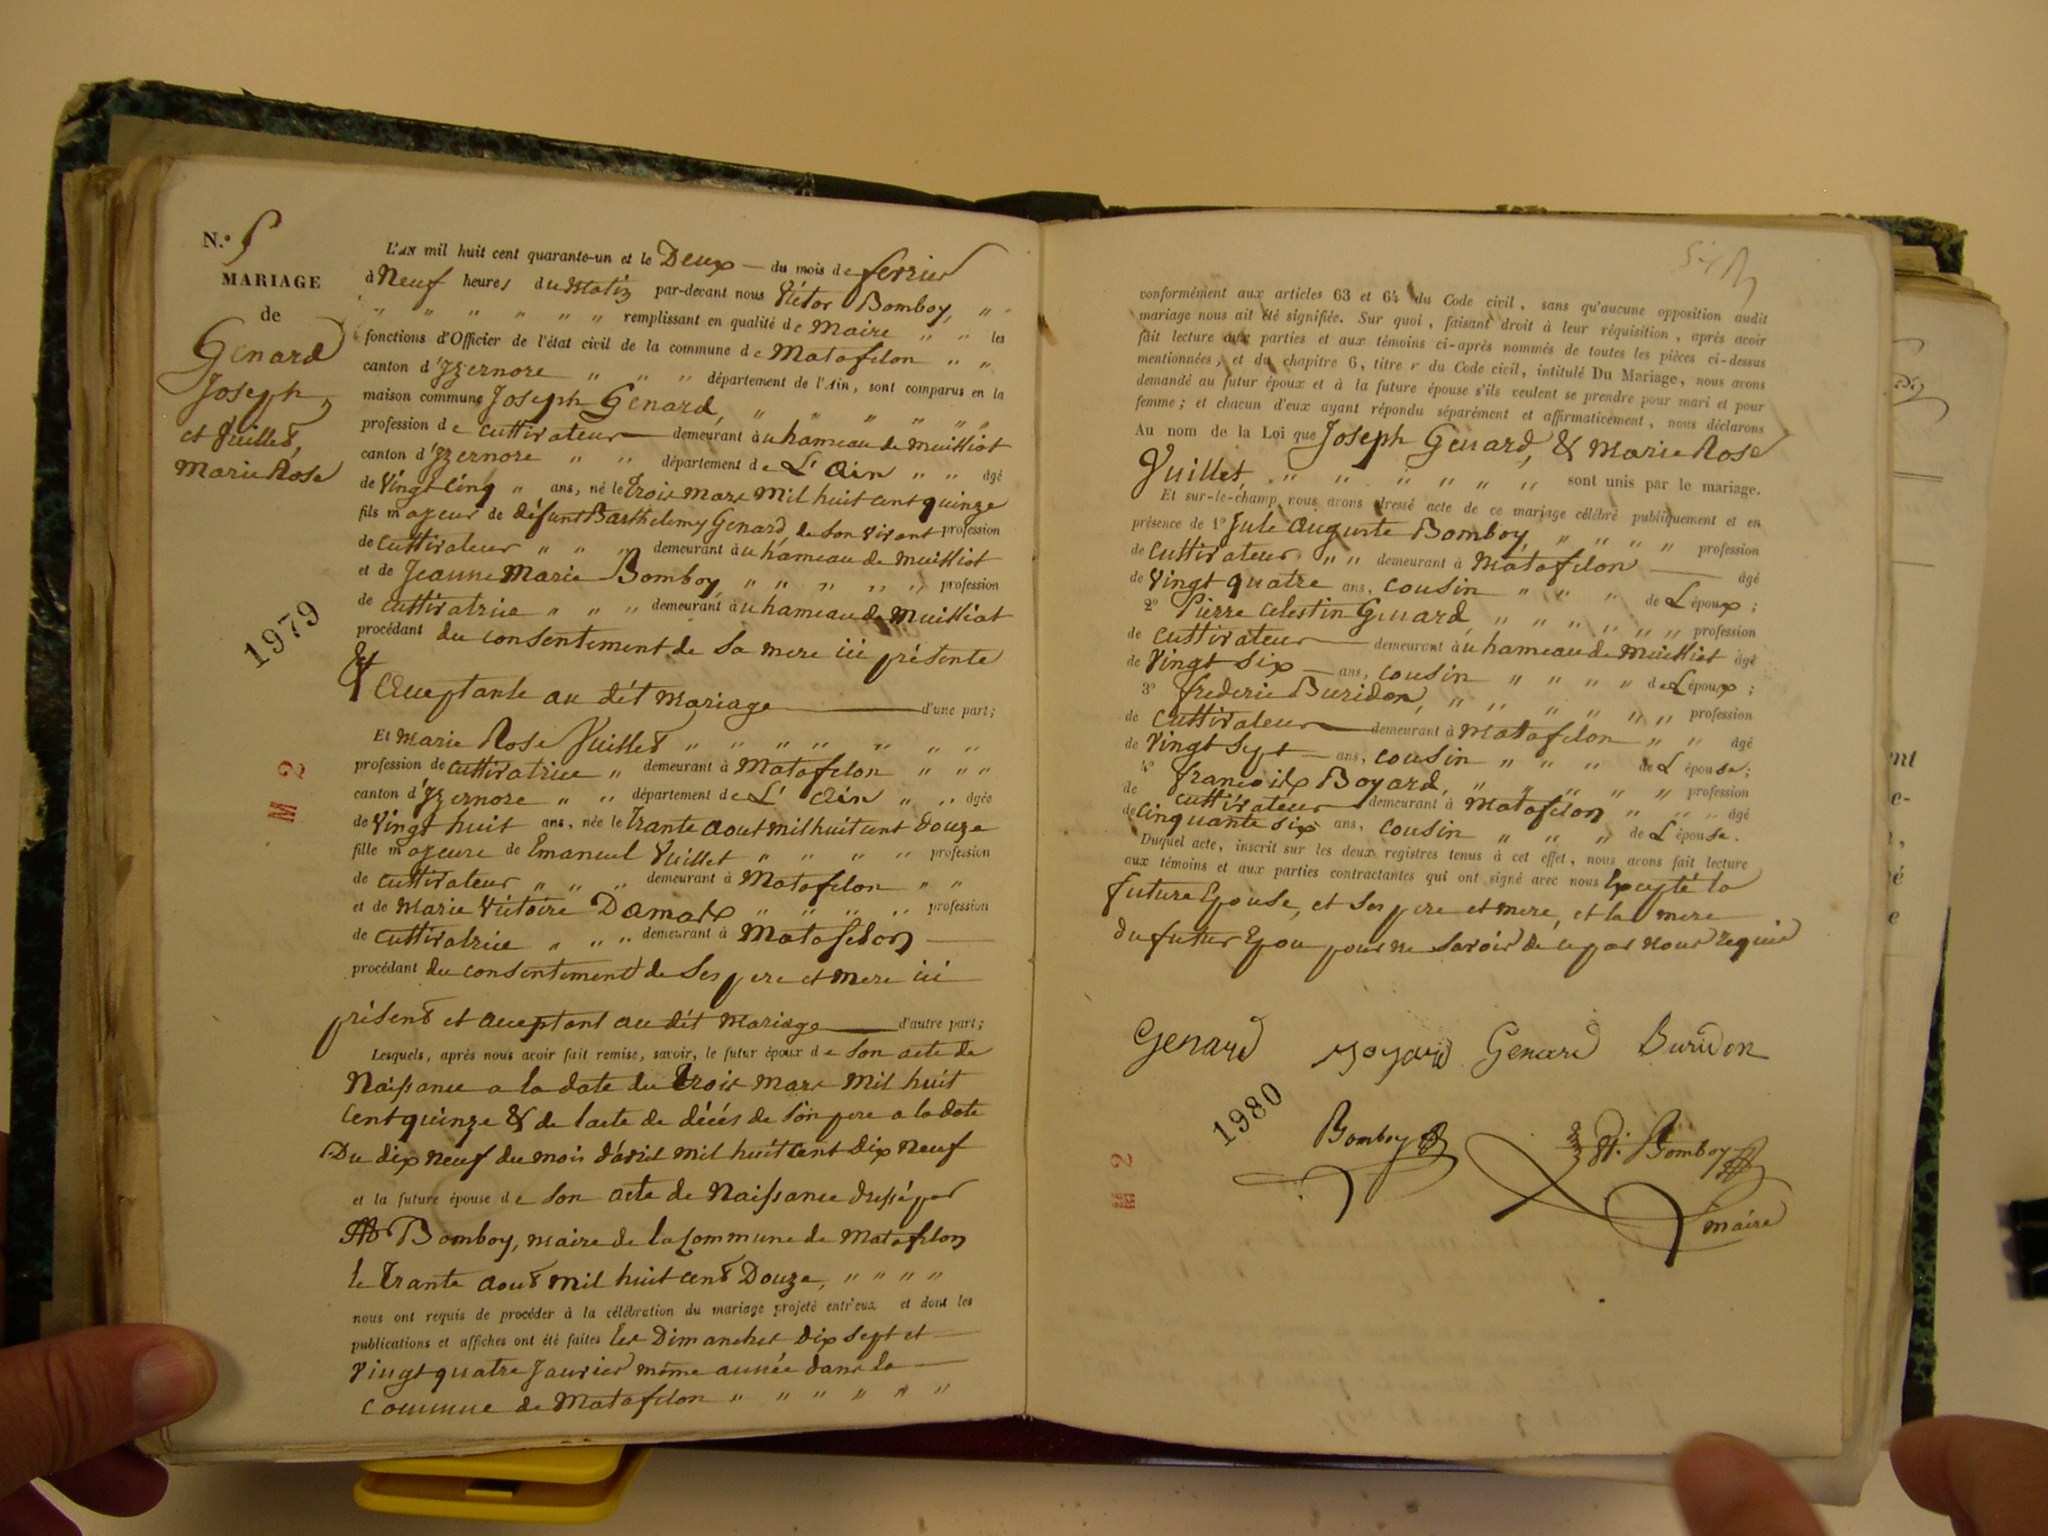 N.º 5
MARIAGE
de
Genard
Joseph,
et Vuillet,
Marie Rose
1979
M 2
L'AN mil huit cent quarante-un et le Deux — du mois de fevrier
à Neuf heures du Matin par-devant nous Victor Bomboy, " "
" " " " " " remplissant en qualité de Maire " " les
fonctions d'Officier de l'état civil de la commune de Matafelon " "
canton d'Izernore " " " département de l'Ain, sont comparus en la
maison commune Joseph Genard, " " " " "
profession de cultivateur — demeurant à u hameau de Muilliat
canton d'Izernore " " département de L'Ain " " âgé
de Vingt Cinq " ans, né le Trois Mars Mil huit cent quinze
fils majeur de défunt Barthelemy Genard, de son vivant profession
de cultivateur " " " demeurant à u hameau de Muilliat
et de Jeanne Marie Bomboy, " " " " " profession
de cultivatrice " " " demeurant à u hameau de Muilliat
procédant du consentement de sa mere ici présente
& acceptante au dit mariage — d'une part;
Et Marie Rose Vuillet " " " " " " "
profession de cultivatrice " demeurant à Matafelon " " "
canton d'Izernore " " département de L' Ain " " âgée
de Vingt huit ans, née le Trante aout mil huit cent douze
fille majeure de Emanuel Vuillet " " " " profession
de cultivateur " " " demeurant à Matafelon " "
et de Marie Victoire Damas " " " " profession
de cultivatrice " " " demeurant à Matafelon —
procédant du consentement de ses pere et mere ici
présent et acceptant au dit mariage — d'autre part;
Lesquels, après nous avoir fait remise, savoir, le futur époux de son acte de
Naissance a la date du Trois mars mil huit
Cent quinze & de l'acte de décés de son pere a la date
Du dix neuf du mois d'avril mil huit cent dix neuf
et la future épouse de son acte de Naissance dressé par
Bomboy, maire de la Commune de Matafelon
le Trante aout mil huit cent Douze, " " " "
nous ont requis de procéder à la célébration du mariage projeté entr'eux et dont les
publications et affiches ont été faites les Dimanches dix sept et —
Vingt quatre Janvier même année dans la —
commune de Matafelon " " " " " "
conformément aux articles 63 et 64 du Code civil, sans qu'aucune opposition audit
mariage nous ait été signifiée. Sur quoi, faisant droit à leur réquisition, après avoir
fait lecture aux parties et aux témoins ci-après nommés de toutes les pièces ci-dessus
mentionnées, et du chapitre 6, titre v du Code civil, intitulé Du Mariage, nous avons
demandé au futur époux et à la future épouse s'ils veulent se prendre pour mari et pour
femme; et chacun d'eux ayant répondu séparément et affirmativement, nous déclarons
Au nom de la Loi que Joseph Genard, & Marie Rose
Vuillet, " " " " " " sont unis par le mariage.
Et sur-le-champ nous avons dressé acte de ce mariage célébré publiquement et en
présence de 1º Jule Auguste Bomboy, " " " " profession
de cultivateur " " demeurant à Matafelon — âgé
de Vingt quatre ans, cousin " " " de L'époux;
2º Pierre Celestin Genard, " " " " " " profession
de cultivateur — demeurant à u hameau de Muilliat âgé
de Vingt six — ans, cousin " " " " de L'époux;
3º frederic Buridon, " " " " " " profession
de cultivateur — demeurant à Matafelon " " âgé
de Vingt Sept — ans, cousin " " " de L'épouse;
4º françois Boyard, " " " " " profession
de cultivateur demeurant à Matafelon " " " âgé
de Cinquante six ans, cousin " " " de L'épouse.
Duquel acte, inscrit sur les deux registres tenus à cet effet, nous avons fait lecture
aux témoins et aux parties contractantes qui ont signé avec nous Excepté la
future Epouse, et ses pere et mere, et la mere
du futur Epou pour ne savoir de ce par nous requis
Genard Boyard Genard Buridon
1980
Bomboy Vt. Bomboy
maire
M 2